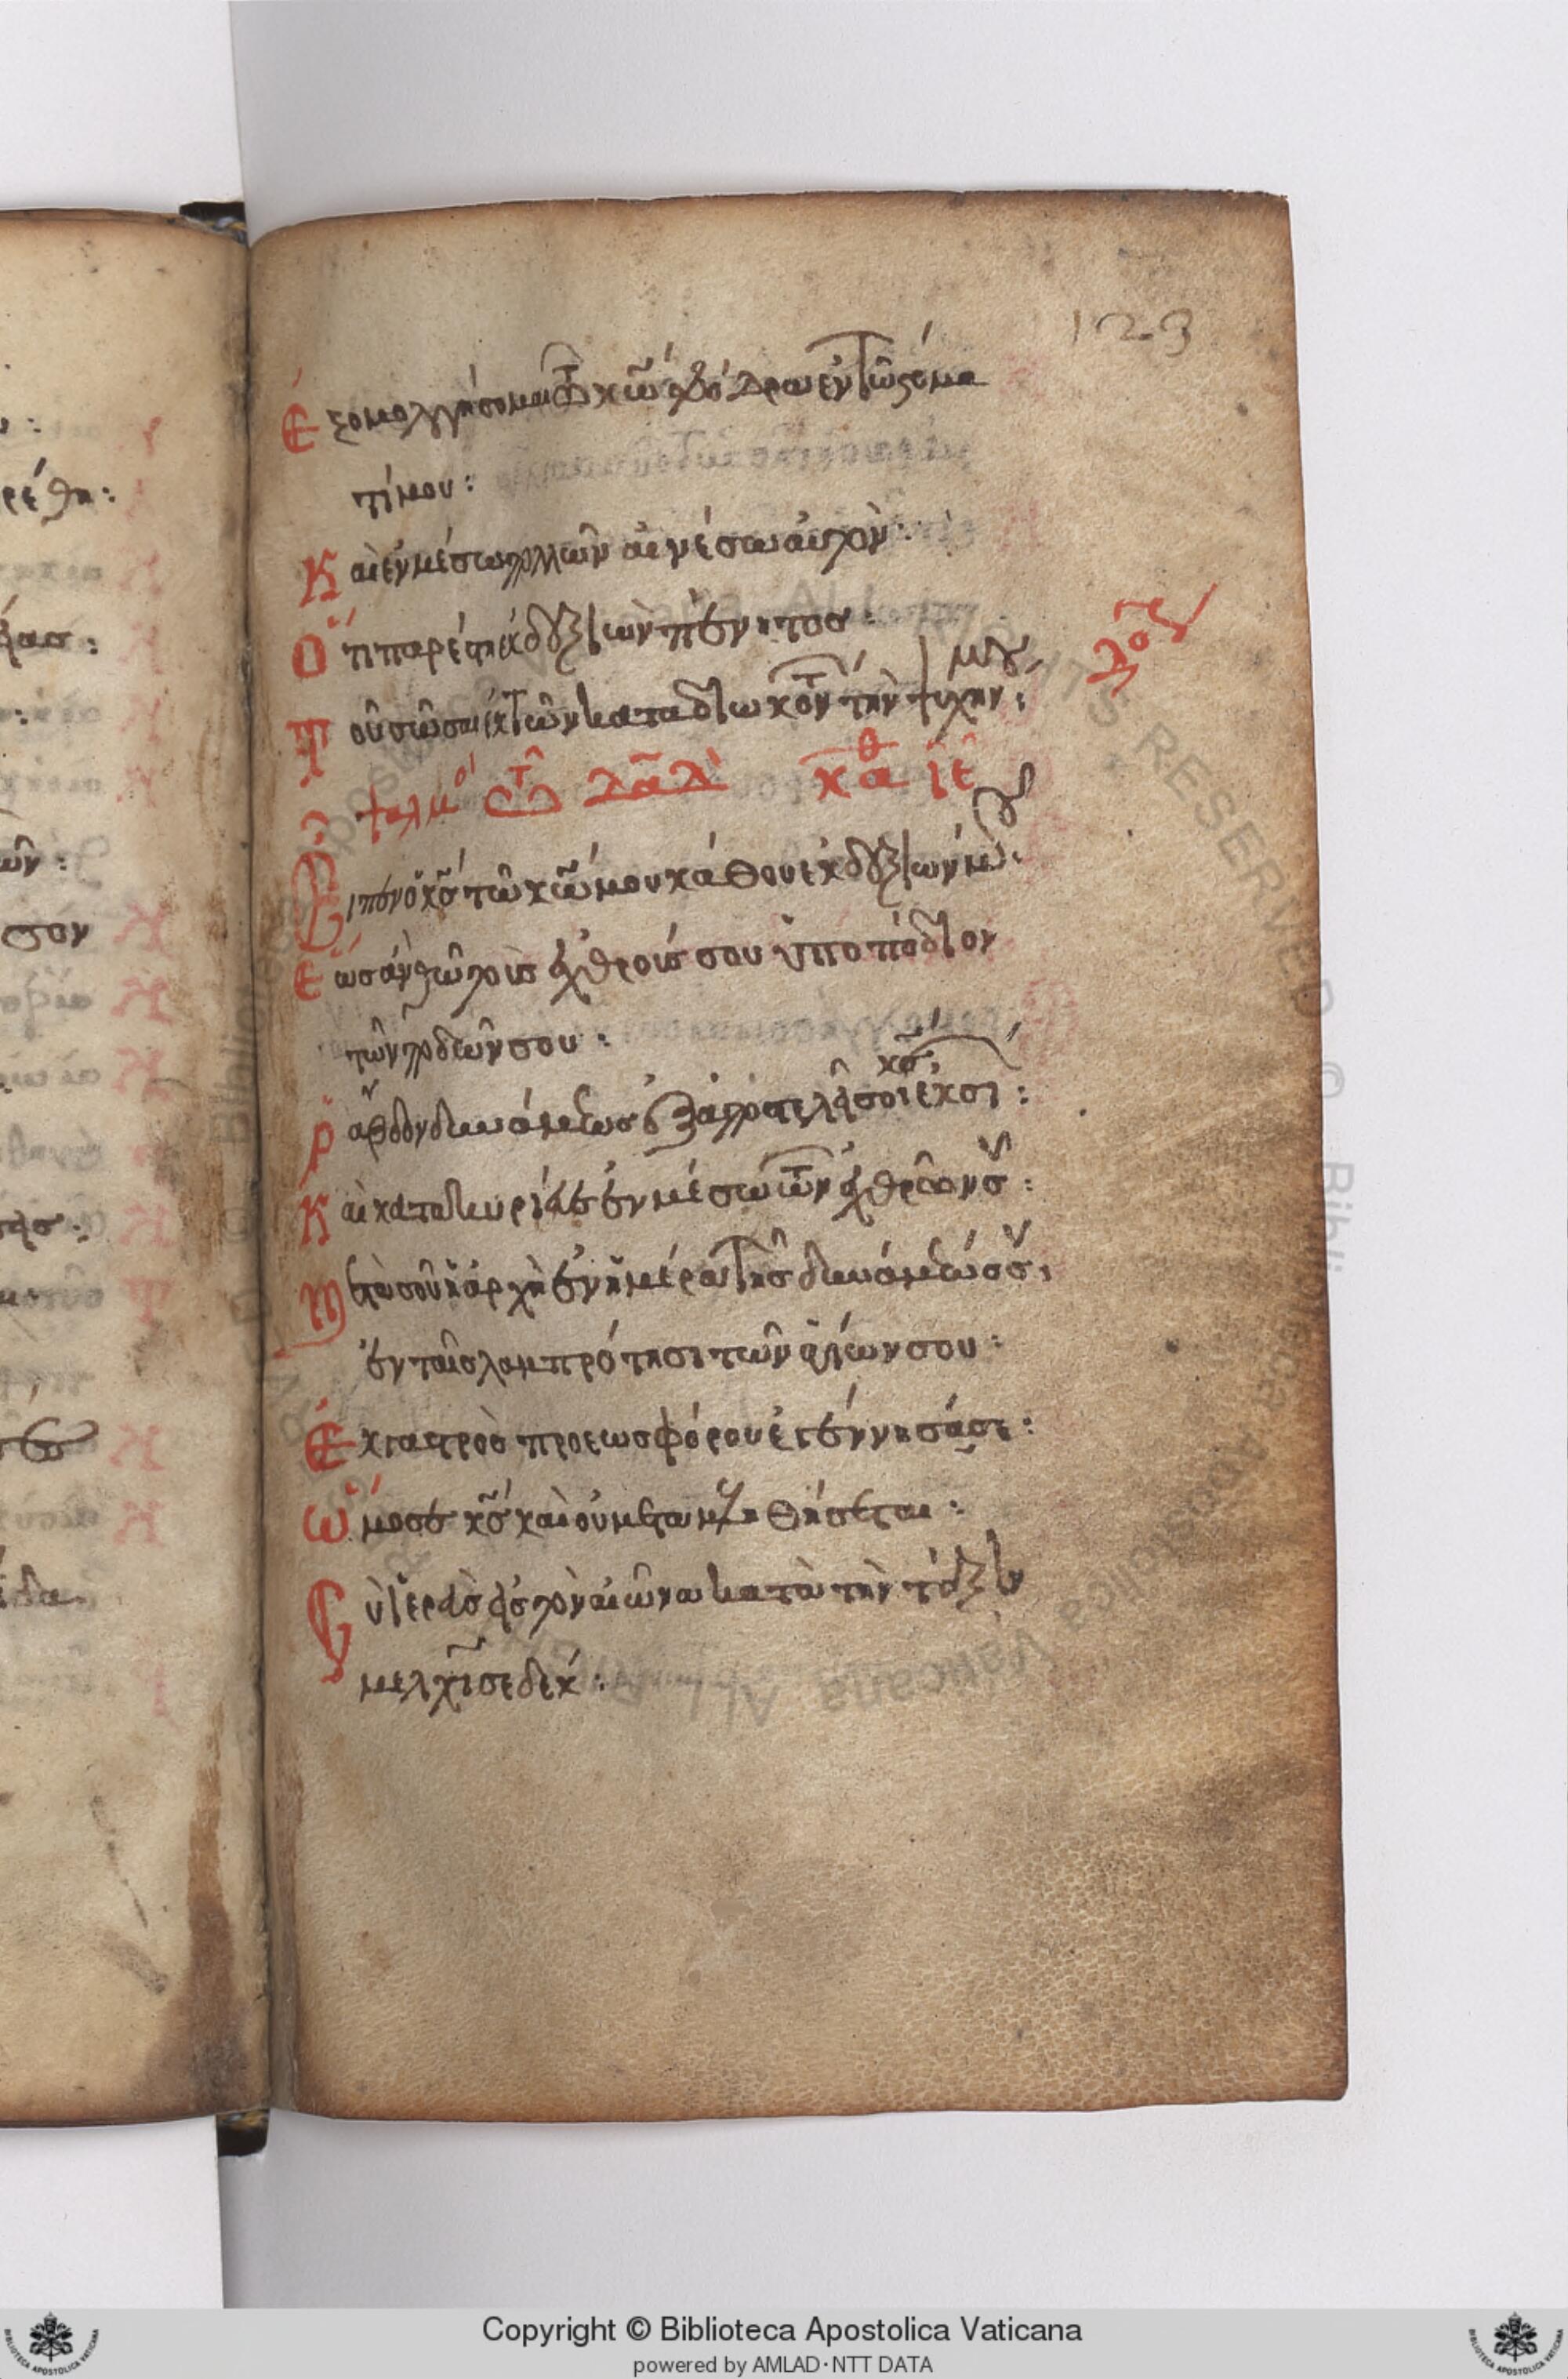 123
Ἐξομολογήσομαι τῷ κῶ σφόδρα ἐν τῶ στόμα
τί μου:
Καὶ ἐν μέσω πολλῶν αἰνέσω αὐτὸν:
Ὅτι παρέστη ἐκ δεξιῶν πένητος:
Τοῦ σῶσαι ἐκ τῶν καταδιωκόντων τὴν ψυχήν μου:
ψαλμὸ τῷ δᾶδ
Εἶπεν ὁ κς τῶ κῶ μου κάθου ἐκ δεξιῶν μου
Ἕως ἂν θῶ τοὺς ἐχθρούς σου ὑποπόδιον
τῶν ποδῶν σου:
Ῥάβδον δυνάμεως ἐξαποστελεῖ σοι κς ἐκ σι:
Καὶ κατακυριέυε ἐν μέσω τῶν ἐχθρῶν σου:
Μετὰ σοῦ ἡ ἀρχὴ ἐν ἡμέρα τῆς δυνάμεώς σου,
ἐν ταῖς λαμπρότησι τῶν ἁγίων σου:
Ἐκ γαστρὸς πρὸ ἑωσφόρου ἐγέννησά σε:
Ὤμοσε κς καὶ οὐ μεταμεληθήσεται:
Σὺ ἱερεὺς εἰς τὸν αἰῶνα κατὰ τὴν τάξιν
μελχισεδέκ:
Copyright © Biblioteca Apostolica Vaticana
powered by AMLAD·NTT DATA